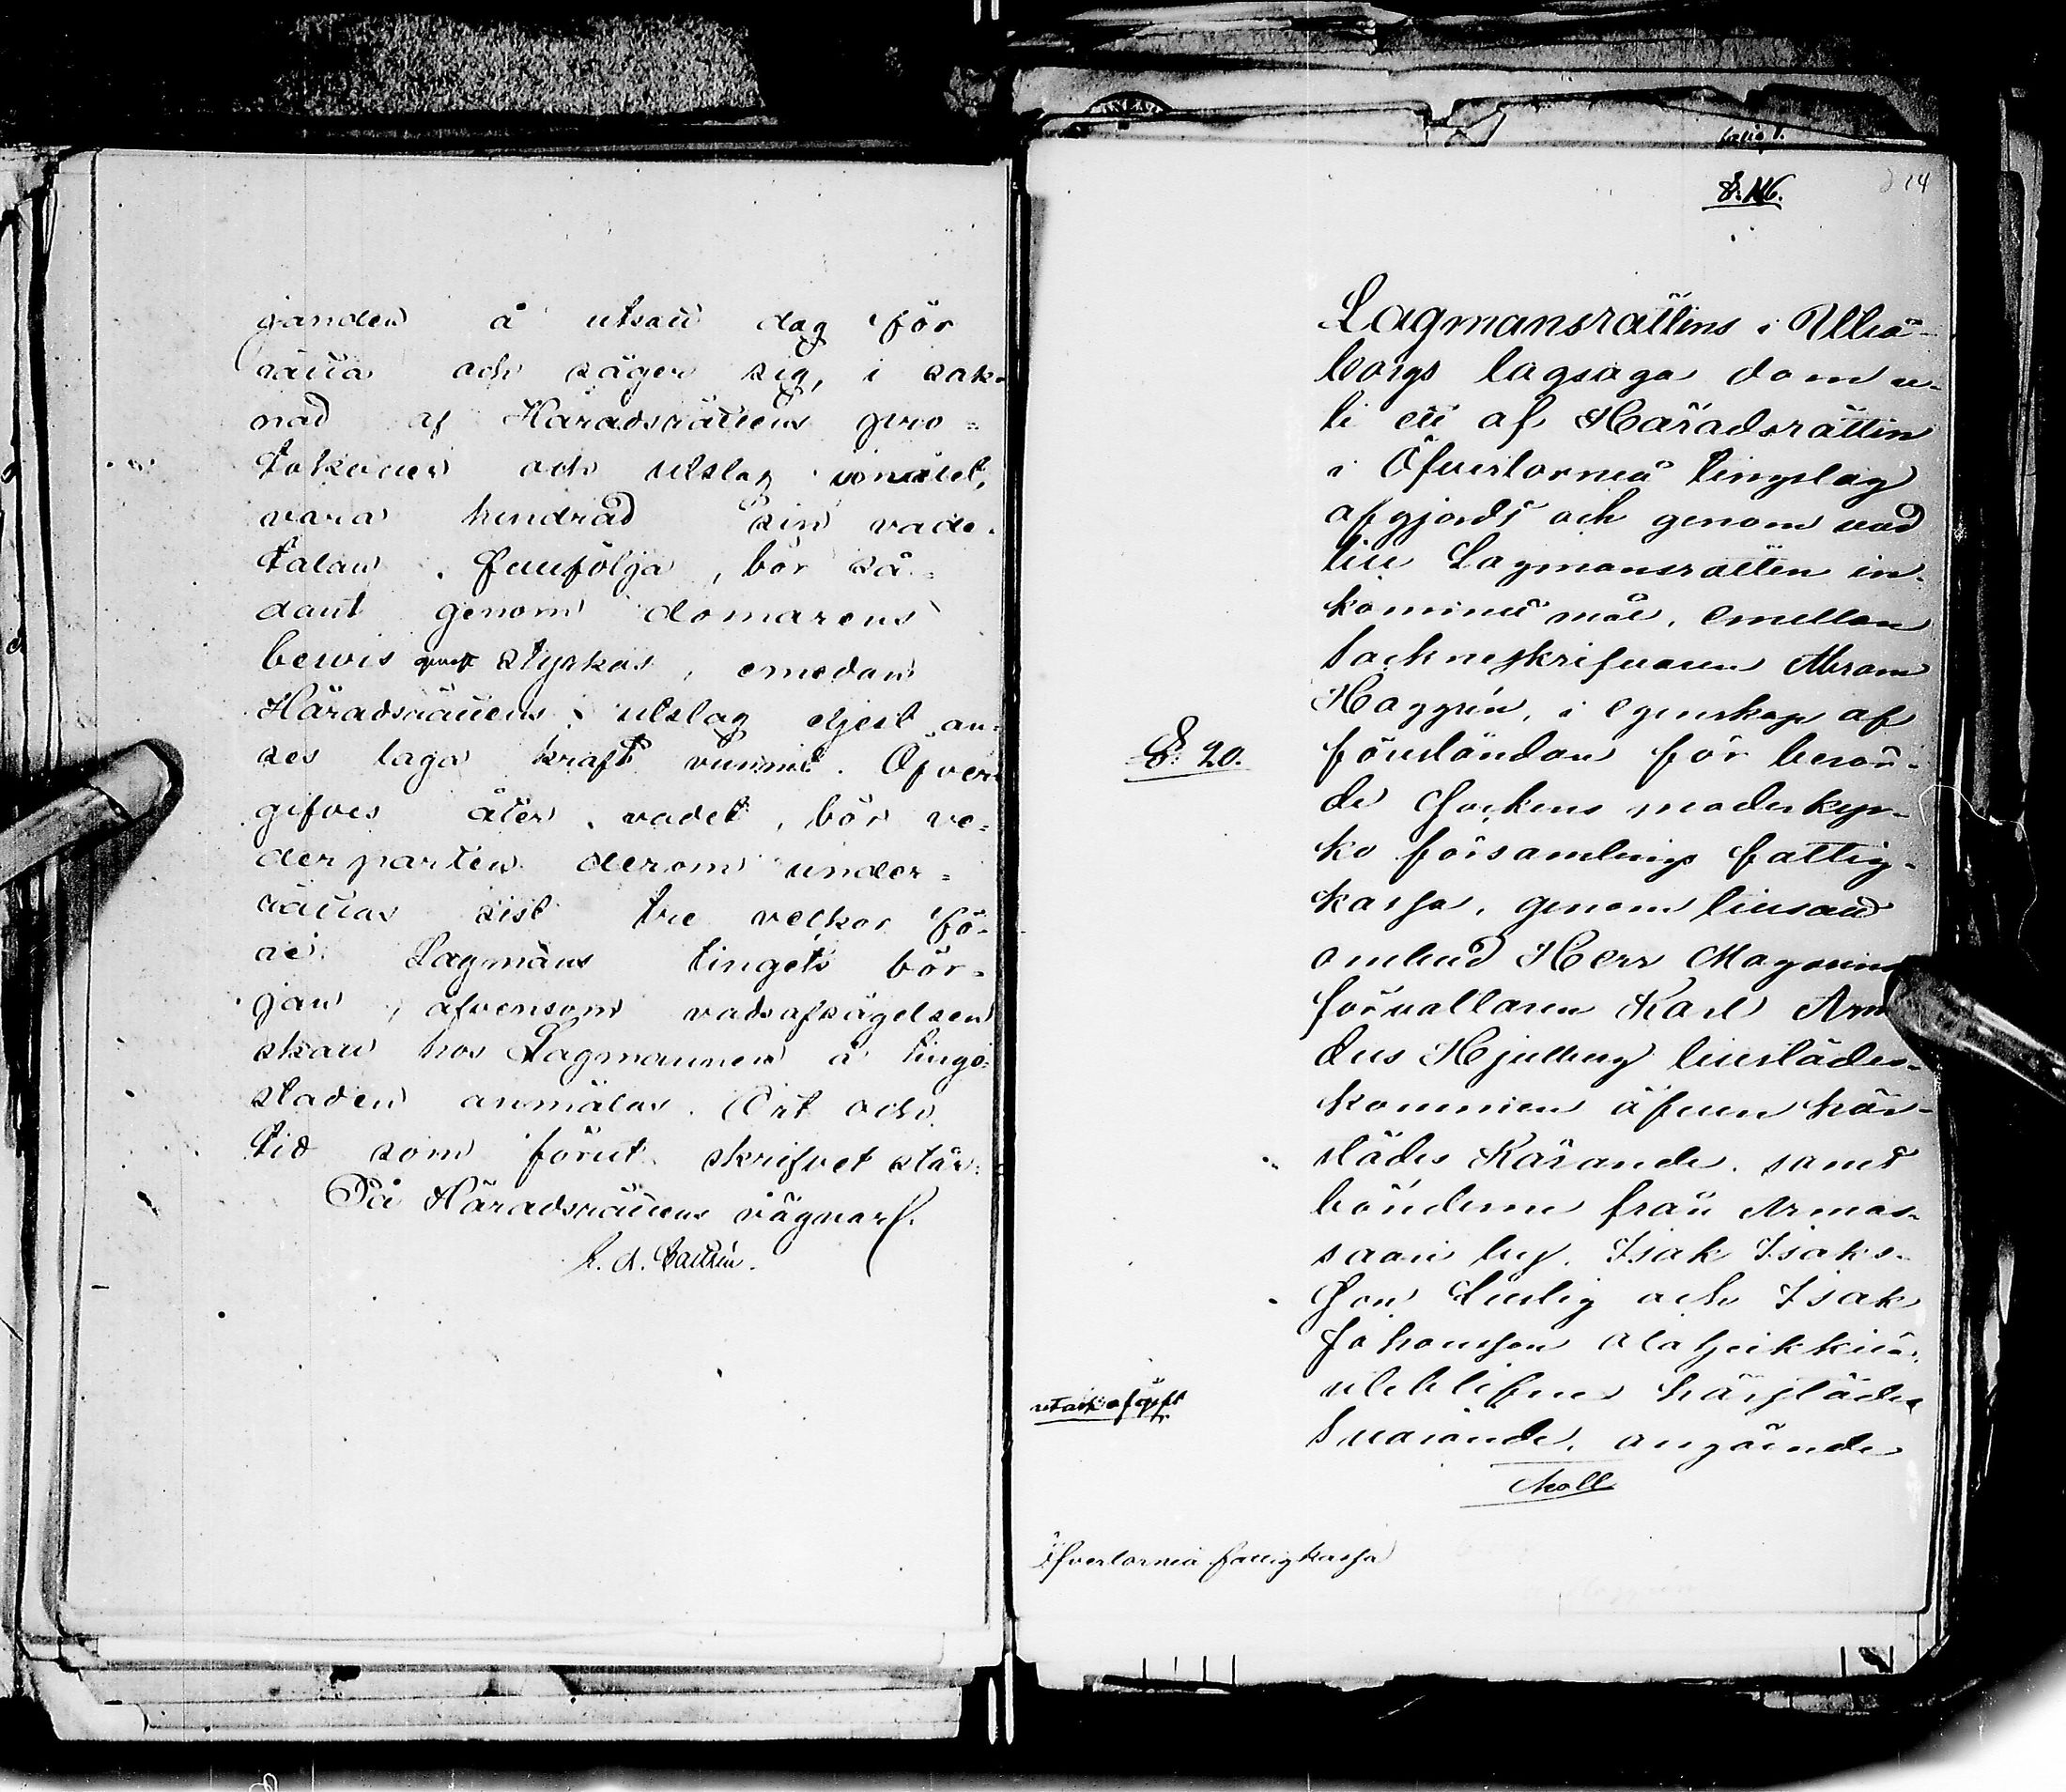 janden å utsatt dag för
rätta och säger sig, i sak-
nad af Häradsrättens pro=
tokoller och utslag i målet,
vara hindrad sin vade-
talan fullfölja, bör så=
dant genom domarens
bewis styrkas, emedan
Häradsrättens utslag eljest an-
ses laga kraft vunnit. Öfver
gifves åter vadet, bör ve=
derparten derom under=
rättas sist tre veckor fö-
re Lagmans tingets bör=
jan, äfvensom vadsafsägelsen
skall hos Lagmannen å tings-
staden anmälas. Ort och
tid som förut skrifvet står.
På Häradsrättens vägnar.
fattig l.
§. 116.
214
Lagmansrättens i Uleå-
borgs lagsaga dom u-
ti ett af Häradsrätten
i Öfvertorneå tingslag
afgjordt och genom vad
till Lagmansrätten in-
kommit mål, emellan
Sockneskrifvaren Abram
Häggrén, i egenskap af
§. 20.
föreståndare för berör-
de Sockens moderkyr-
ko församlings fattig-
kassa, genom tillsatt
ombud Herr Magasins
förvaltaren Karl
Hjulberg tillstädes-
kommen äfven här-
städes Kärande, samt
bönderne från Armas-
saari by, Isak Isaks-
son och Isak
Johansson Alaheikkilä,
uteblifne härstädes
Svarande, angående
Moll
Öfvertorneå fattigkassa